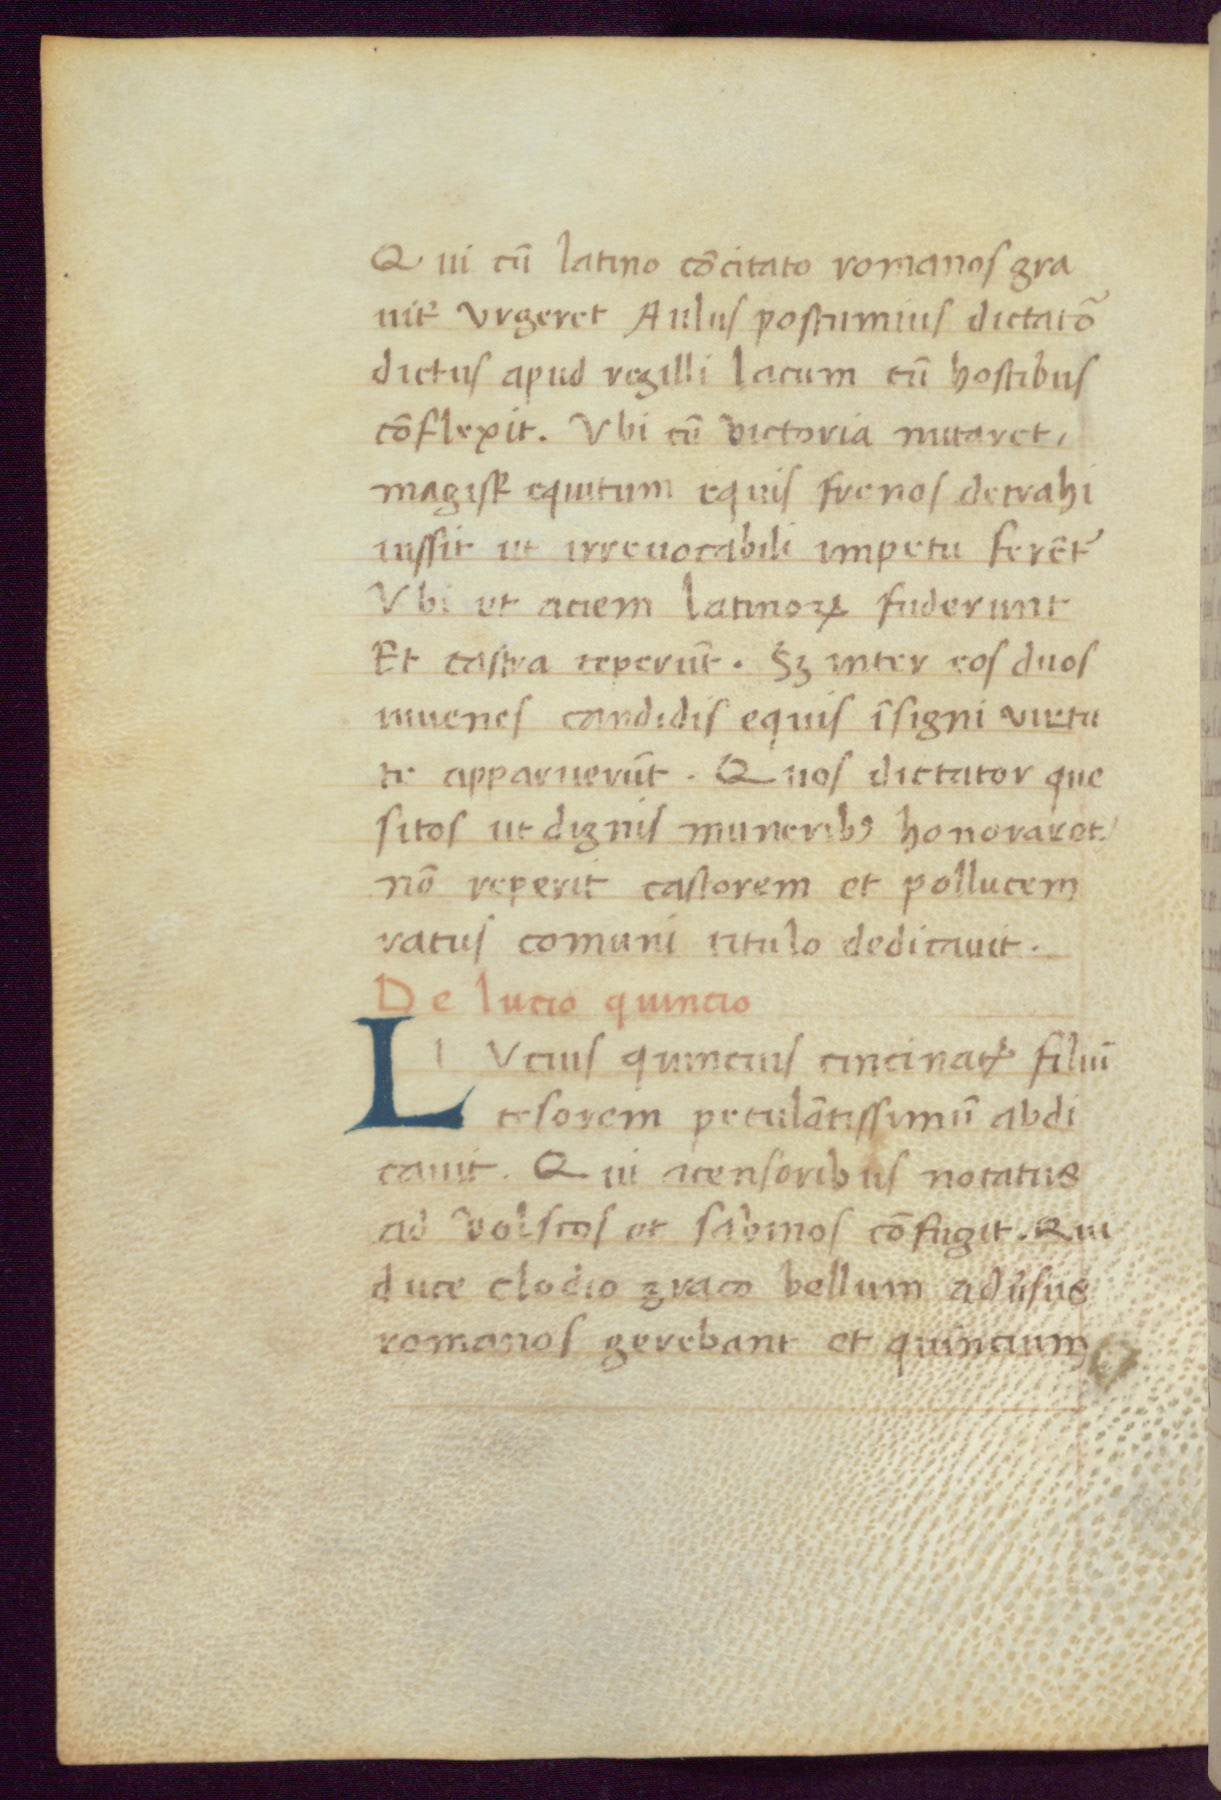 Qui cū latino cōcitato romanos gra
uit̃ vrgeret Aulus postumius dictatō
dictus apud regilli lacum cū hostibus
cōflexit. Vbi cū victoria mutaret,
magist̃ equitum equis frenos detrahi
iussit ut irreuocabili impetu ferēt᷑
Vbi et aciem latinoꝝ fuderunt
Et castra ceperūt. Sꝫ inter eos duos
iuuenes candidis equis īsigni uirtu
te apparuerūt. Quos dictator que
sitos ut dignis muneribꝰ honoraret/
nō reperit castorem et pollucem
ratus comuni titulo dedicauit.
De lucio quincio
LVcius quincius cincinatꝰ filiū
cesorem petulātissimū abdi
cauit. Qui acensoribus notatus
ad volscos et sabinos cōfugit. Qui
duce clodio graco bellum adūsus
romanos gerebant et quincium